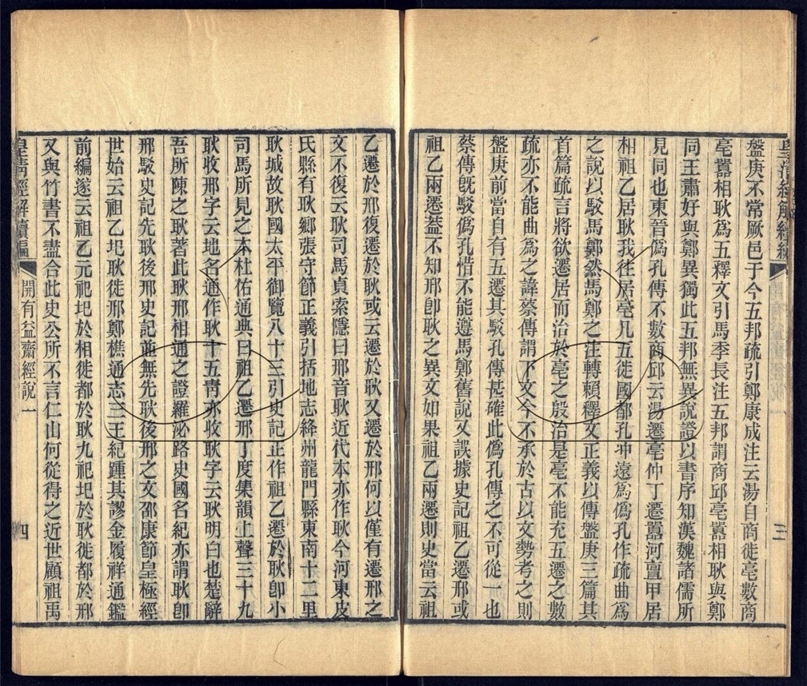 皇清經解續編
三
盤庚不常厥邑于今五邦疏引鄭康成注云湯自商徙亳數商
亳囂相耿爲五釋文引馬季長注五邦謂商邱亳囂相耿與鄭
同王肅好與鄭異獨此五邦無異說證以書序知漢魏諸儒所
見同也東晉僞孔傳不數商邱云湯遷亳仲丁遷囂河亶甲居
相祖乙居耿我往居亳凡五徙國都孔沖遠爲僞孔作疏曲爲
之說以駁馬鄭然馬鄭之注轉賴釋文正義以傳盤庚三篇其
首篇疏言將欲遷居而治於亳之殷治是亳不能充五遷之數
疏亦不能曲爲之諱蔡傳謂下文今不承於古以文勢考之則
盤庚前當自有五遷其駁孔傳甚確此僞孔傳之不可從一也
蔡傳旣駁僞孔惜不能遵馬鄭舊說又誤據史記祖乙遷邢或
祖乙兩遷葢不知邢卽耿之異文如果祖乙兩遷則史當云祖
乙遷於邢復遷於耿或云遷於耿又遷於邢何以僅有遷邢之
文不復云耿司馬貞索隱曰邢音耿近代本亦作耿今河東皮
氏縣有耿鄉張守節正義引括地志絳州龍門縣東南十二里
耿城故耿國太平御覽八十三引史記正作祖乙遷於耿卽小
司馬所見之本杜佑通典曰祖乙遷邢丁度集韻上聲三十九
耿收邢字云地名通作耿十五靑亦收耿字云耿明白也楚辭
吾所陳之耿著此耿邢相通之證羅泌路史國名紀亦謂耿卽
邢駁史記先耿後邢史記並無先耿後邢之文邵康節皇極經
世始云祖乙圯耿徙邢鄭樵通志三王紀踵其謬金履祥通鑑
前編遂云祖乙元祀圯於相徙都於耿九祀圯於耿徙都於邢
又與竹書不盡合此史公所不言仁山何從得之近世顧祖禹
皇清經解續編
開有益齋經說一
四